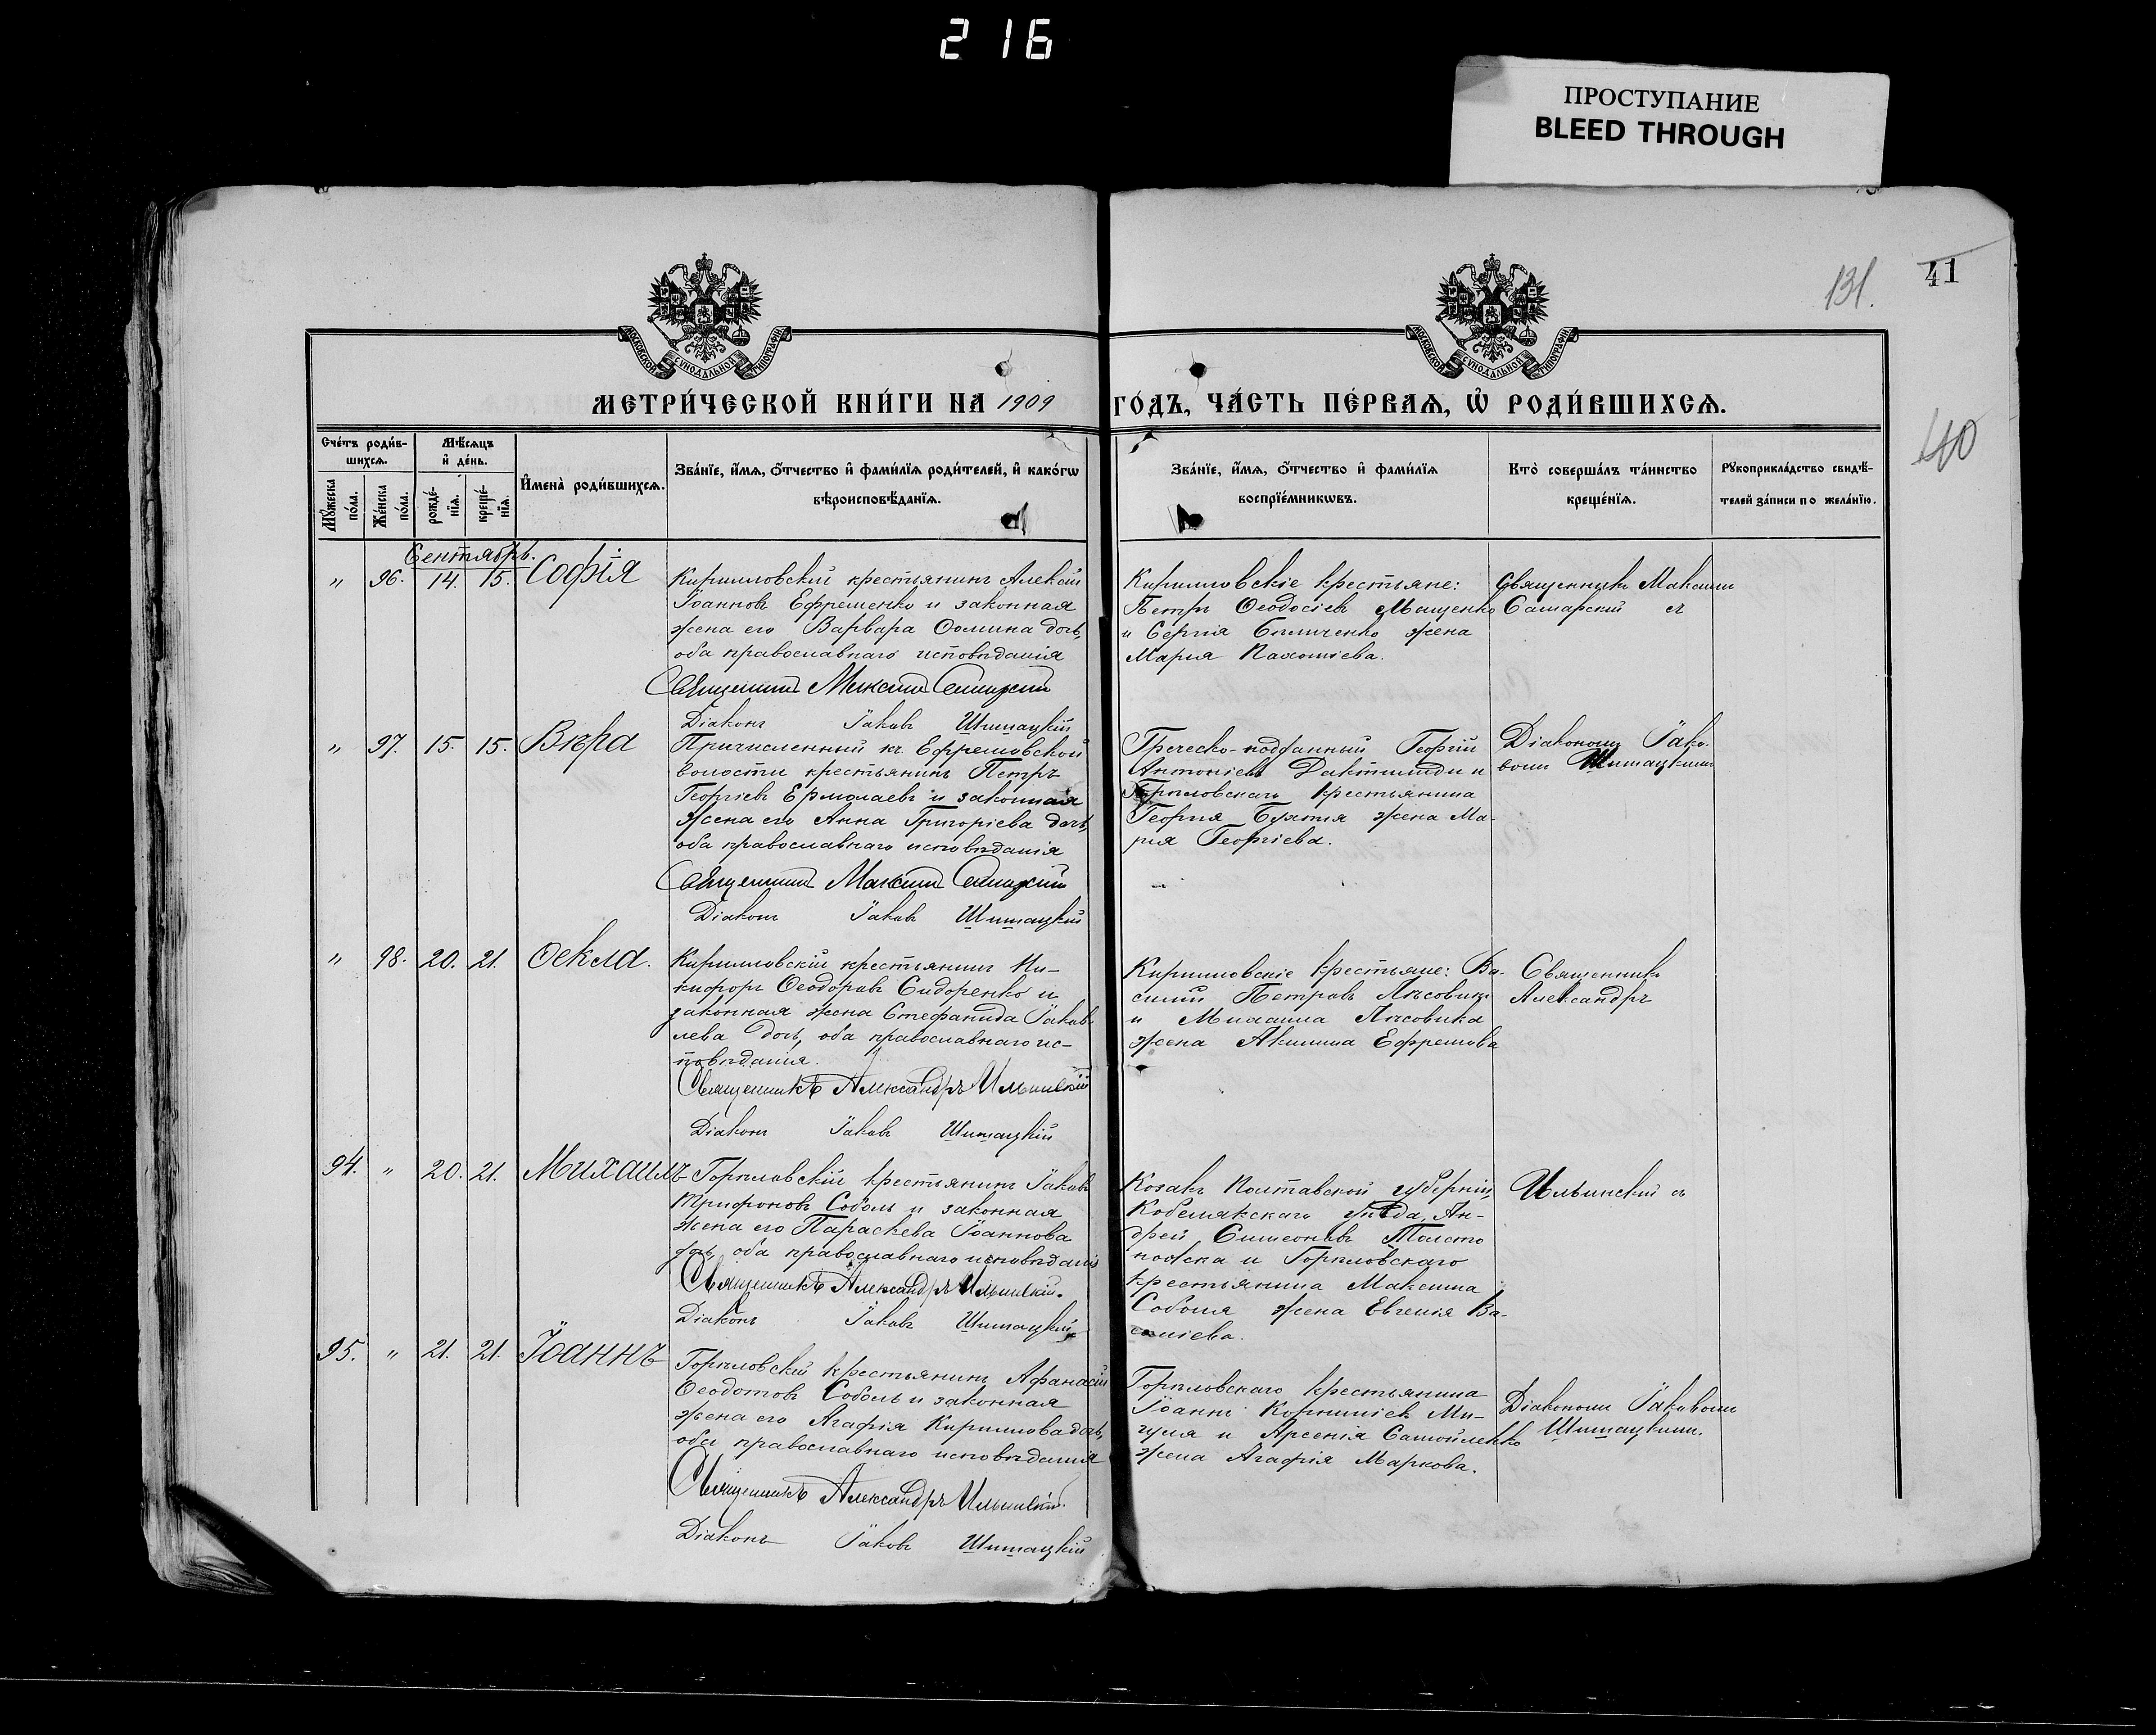 216
ПРОСТУПАНИЕ
BLEED THROUGH
131.
41
40
МОСКОВСКОЙ СѴНОДАЛЬНОЙ ТИПОГРАФІИ
МОСКОВСКОЙ СѴНОДАЛЬНОЙ ТИПОГРАФІИ
МЕТРИ́ЧЕСКОЙ КНИ́ГИ НА 1909 ГО́ДЪ, ЧА́СТЬ ПЕ́РВАѦ, Ѡ҆ РОДИ́ВШИХСѦ.
Сче́тъ роди́в-
шихсѧ.
Мѣ́сѧцъ
и҆ де́нь.
Мꙋ́жеска
по́ла.
Же́нска
по́ла.
рожде́-
нїѧ.
креще́-
нїѧ.
И҆мена̀ роди́вшихсѧ.
Зва́нїе, и҆́мѧ, ѻ҆́тчество и҆ фами́лїѧ роди́телей, и҆ како́гѡ
вѣроисповѣ́данїѧ.
Зва́нїе, и҆́мѧ, ѻ҆́тчество и҆ фами́лїѧ
воспрїе́мникѡвъ.
Кто̀ соверша́лъ та́инство
креще́нїѧ.
Рꙋкоприкла́дство свидѣ́-
телей за́писи по жела́нїю.
Сентябрь.
" 96. 14. 15. Софія
Кирилловскій крестьянинъ Алексій
Іоанновъ Ефременко и законная
жена его Варвара Ѳомина дочь,
оба православнаго исповѣданія
Священникъ Максимъ Самарскій
Діаконъ Іаковъ Шишацкій
Кирилловскіе крестьяне:
Петръ Ѳеодосіевъ Мащенко
и Сергія Биличенко жена
Марія Пахоміева.
Священникъ Максимъ
Самарскій съ
" 97. 15. 15. Вѣра
Причисленный къ Ефремовской
волости крестьянинъ Петръ
Георгіевъ Ермолаевъ и законная
жена его Анна Григоріева дочь,
оба православнаго исповѣданія
Священникъ Максимъ Самарскій
Діаконъ Іаковъ Шишацкій
Греческо-подданный Георгій
Антоніевъ и
Горѣловскаго крестьянина
Георгія жена Ма-
рія Георгіева.
Діакономъ Іако-
вомъ Шишацкимъ
" 98. 20. 21. Ѳекла.
Кирилловскій крестьянинъ Ни-
кифоръ Ѳеодоровъ Сидоренко и
законная жена Стефанида Іаков-
лева дочь, оба православнаго ис-
повѣданія.
Священникъ Александръ Ильинскій
Діаконъ Іаковъ Шишацкій
Кирилловскіе крестьяне: Ва-
силій Петровъ Лѣсовикъ
и Михаила Лѣсовика
жена Акилина Ефремова
Священникъ
Александръ
94. " 20. 21. Михаилъ
Горѣловскій крестьянинъ Іаковъ
Трифоновъ Соболь и законная
жена его Параскева Іоаннова
дочь, оба православнаго исповѣданія
Священникъ Александръ Ильинскій.
Діаконъ Іаковъ Шишацкій
Козакъ Полтавской губерніи
Кобелякскаго уѣзда, Ан-
дрей Симеоновъ Толсто
ножка и Горѣловскаго
крестьянина Максима
Соболя жена Евгенія Ва-
силіева.
Ильинскій съ
95. " 21. 21. Іоаннъ
Горѣловскій крестьянинъ Афанасій
Ѳеодотовъ Соболь и законная
жена его Агафія Кириллова дочь,
оба православнаго исповѣданія
Священникъ Александръ Ильинскій.
Діаконъ Іаковъ Шишацкій
Горѣловскаго крестьянина
Іоаннъ Корниліевъ Ми-
гуля и Арсенія Самойленко
жена Агафія Маркова.
Діакономъ Іаковомъ
Шишацкимъ.